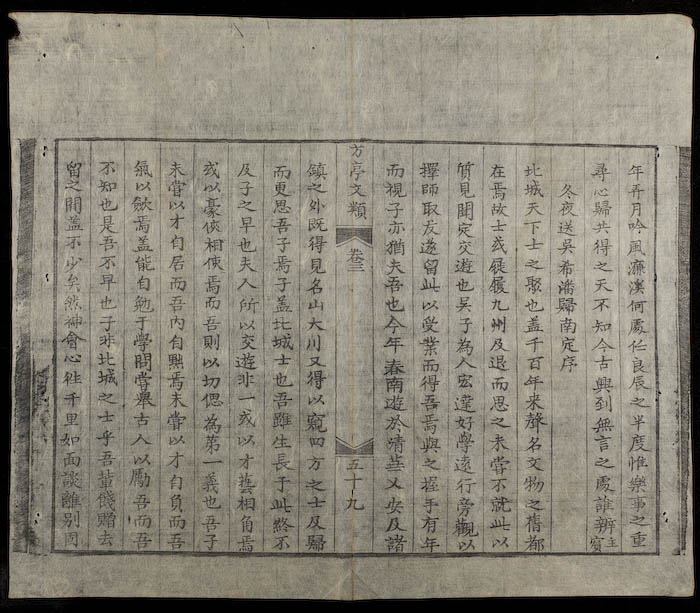 年弄月吟風濂溪何處任良辰之半度惟樂事之重
尋心歸共得之天不知今古興到無言之處誰辨主賓
冬夜送吳希潘歸南定序
北城天下士之聚也蓋千百年来聲名文物之舊都
在焉故士或屐履九州及退而思之未嘗不就此以
質見聞定交遊也吳子為人宏達好學遠行旁觀以
擇師取友遂留此以受業而得吾焉與之握手有年
而視子亦猶夫吾也今年春南遊於清蓝乂安及諸
方亭文類
卷三
五十九
鎮之外既得見名山大川又得以窺四方之士及歸
而更思吾子焉子蓋北城士也吾雖生長于此終不
及子之早也夫人所以交遊非一或以才藝相角焉
或以豪俠相使焉而吾則以切偲為第一義也吾子
未嘗以才自居而吾内自黙焉未嘗以才自負而吾
氣以歛焉蓋能自勉于學問嘗舉古人以勵吾而吾
不知也是吾不早也子非北城之士乎吾輩餞贈去
留之間蓋不少矣然神會心徃千里如面談離別同